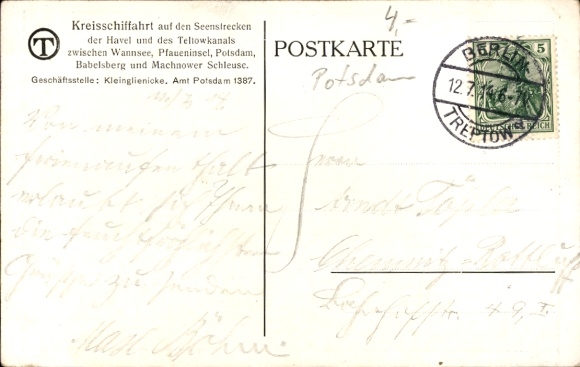 Kreisschiffahrt auf den Seenstrecken
der Havel und des Teltowkanals
zwischen Wannsee, Pfaueninsel, Potsdam,
Babelsberg und Machnower Schleuse.
Geschäftsstelle: Kleinglienicke. Amt Potsdam 1387.
T
POSTKARTE
4,-
Potsdam
BERLIN
12.7.14.6-7
TREPTOW
5
DEUTSCHES REICH
Von meinem
Ferienaufenthalt
erlaubt sich Ihnen
die
Grüsse zu senden
Herrn
Chemnitz
49, I.